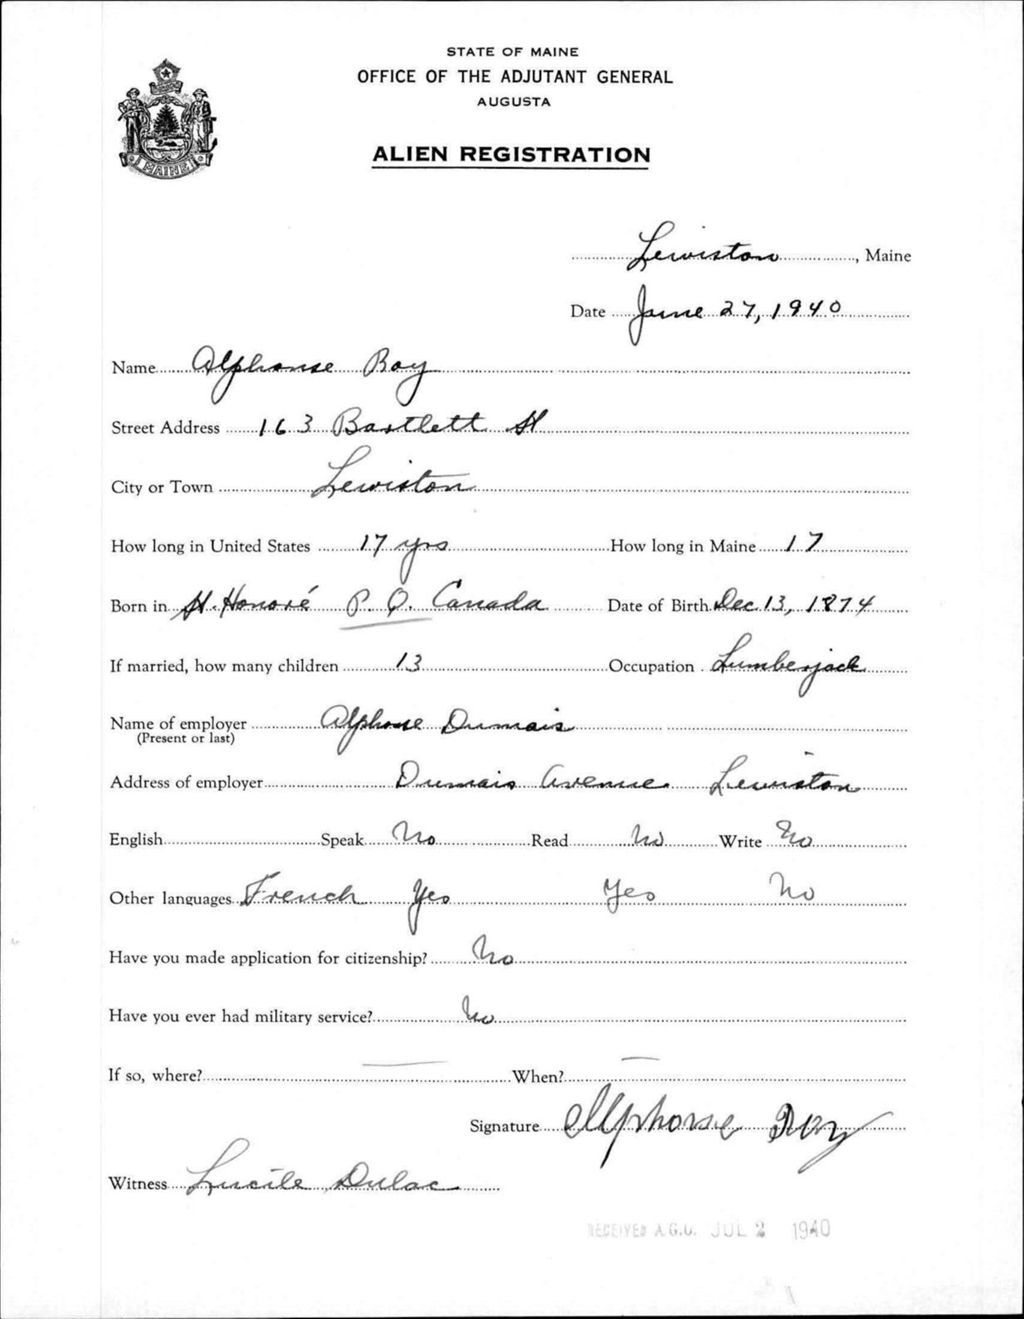 STATE OF MAINE
OFFICE OF THE ADJUTANT GENERAL
AUGUSTA
ALIEN REGISTRATION
MAINE
Lewiston, Maine
Date June 27, 1940
Name Alphonse Roy
Street Address 163 Bartlett St
City or Town Lewiston
How long in United States 17 yrs How long in Maine 17
Born in St. Honoré P. Q. Canada Date of Birth Dec. 13, 1874
If married, how many children 13 Occupation Lumberjack
Name of employer Alphonse Dumais
(Present or last)
Address of employer Dumais Avenue Lewiston
English Speak No Read No Write No
Other languages French Yes Yes No
Have you made application for citizenship? No
Have you ever had military service? No
If so, where? — When? —
Signature Alphonse Roy
Witness Lucile Dulac
RECEIVED A.G.O. JUL 2 1940